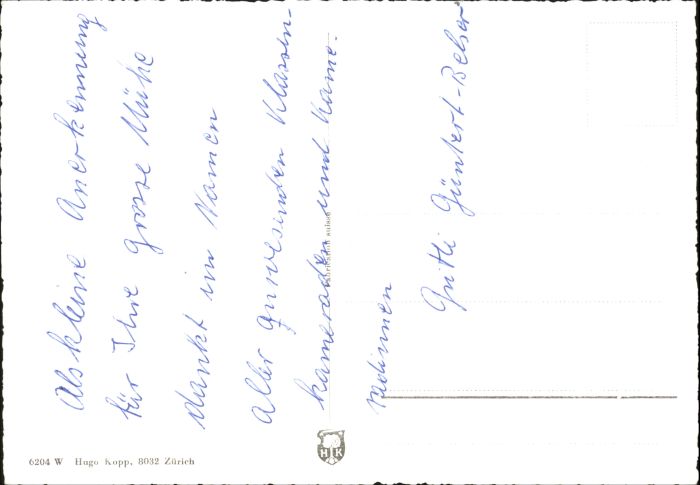 Als kleine Anerkennung
für Ihre grosse Mühe
dankt im Namen
aller anwesenden Klassen-
kameraden und Kame-
radinnen
Gritli Güntert-Belser
Fabrikation suisse
6204 W Hugo Kopp, 8032 Zürich
H K